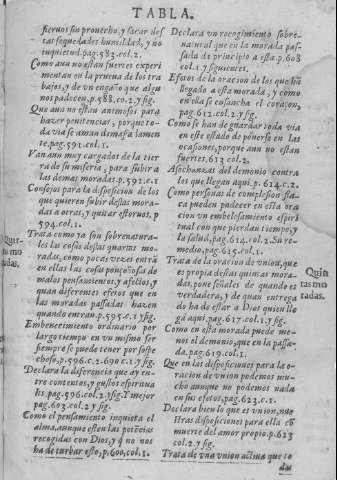 TABLA.
fieruos sin prouecho, y sacar des
tas sequedades humildad, y no
inquietud. pag. 583. col. 2.
Como aun no estan fuertes experi
mentan en la prueua de los tra
bajos, y de vn engaño que algu
nos padecen, p. 588. co. 2. y sig.
Que aun no estan animosos para
hazer penitencias, porque to-
da via se aman demasiadamen
te. pag. 591. col. 1.
Van aun muy cargados de la tier
ra de su miseria, para subir a
las demas moradas. p. 592. c. 1
Consejos para la disposicion de los
que quieren subir destas mora-
das a otras, y quitar estoruos, p
594. col. 1.
Trata como ya son sobrenatura-
les las cosas destas quartas mo-
radas, como pocas vezes entrã
en ellas las cosas ponçoñosas de
malos pensamientos, y afectos, y
quan diferentes efetos que en
las moradas passadas hazen
quando entran. p. 595. c. 1. y sig.
Embeuecimiento ordinario por
largo tiempo en vn mismo ser
siempre se puede tener por sospe
choso, p. 596. c. 2. 690. c. 1. y sig.
Declara la diferencia que ay en-
tre contentos, y gustos espiritua
les. pag. 596. col. 2. y sig. Y mejor
pag. 603. col. 2. y sig.
Como el pensamiento inquieta el
alma, aunque esten las potẽcias
recogidas con Dios, y q̃ no nos
ha de turbar esto, p. 600, col. 1.
Quar-
tas mo
radas.
Declara vn recogimiento sobre-
natural que en la morada pas-
sada dè principio a esta. p. 608
col. 1. y siguientes.
Efetos de la oracion de los que hã
llegado a esta morada, y como
en ella se ensancha el coraçon,
pag. 612. col. 2. y sig.
Como se han de guardar toda via
en este estado de ponerse en las
ocasiones, porque aun no estan
fuertes, 613 col. 2.
Assechanzas del demonio contra
los que llegan aqui. p. 614. c. 2.
Como personas de complesion fla-
ca pueden padecer en esta ora
cion vn embelesamiento espiri
tual con que pierdan tiempo, y
la salud, pag. 614. col. 2. Su re-
medio, pag. 615. col. 1.
Trata de la oracion de vnion, que
es propia destas quintas mora-
das, pone señales de quando es
verdadera, y de quan entrega
do ha de estar a Dios quien lle
ga aqui, pag. 617. col. 1. y sig.
Como en esta morada puede me-
nos el demonio, que en la passa-
da, pag. 619. col. 1.
Que en las disposiciones para la o-
racion de vnion podemos mu-
cho aunque no podemos nada
en sus efetos, pag. 623. c. 1.
Declara bien lo que es vnion, nue
stras disposiciones para ella cõ
muerte del amor propio. p. 623
col. 2. y sig.
Trata de vna vnion actiua que to
das
Quin
tas mo
radas.